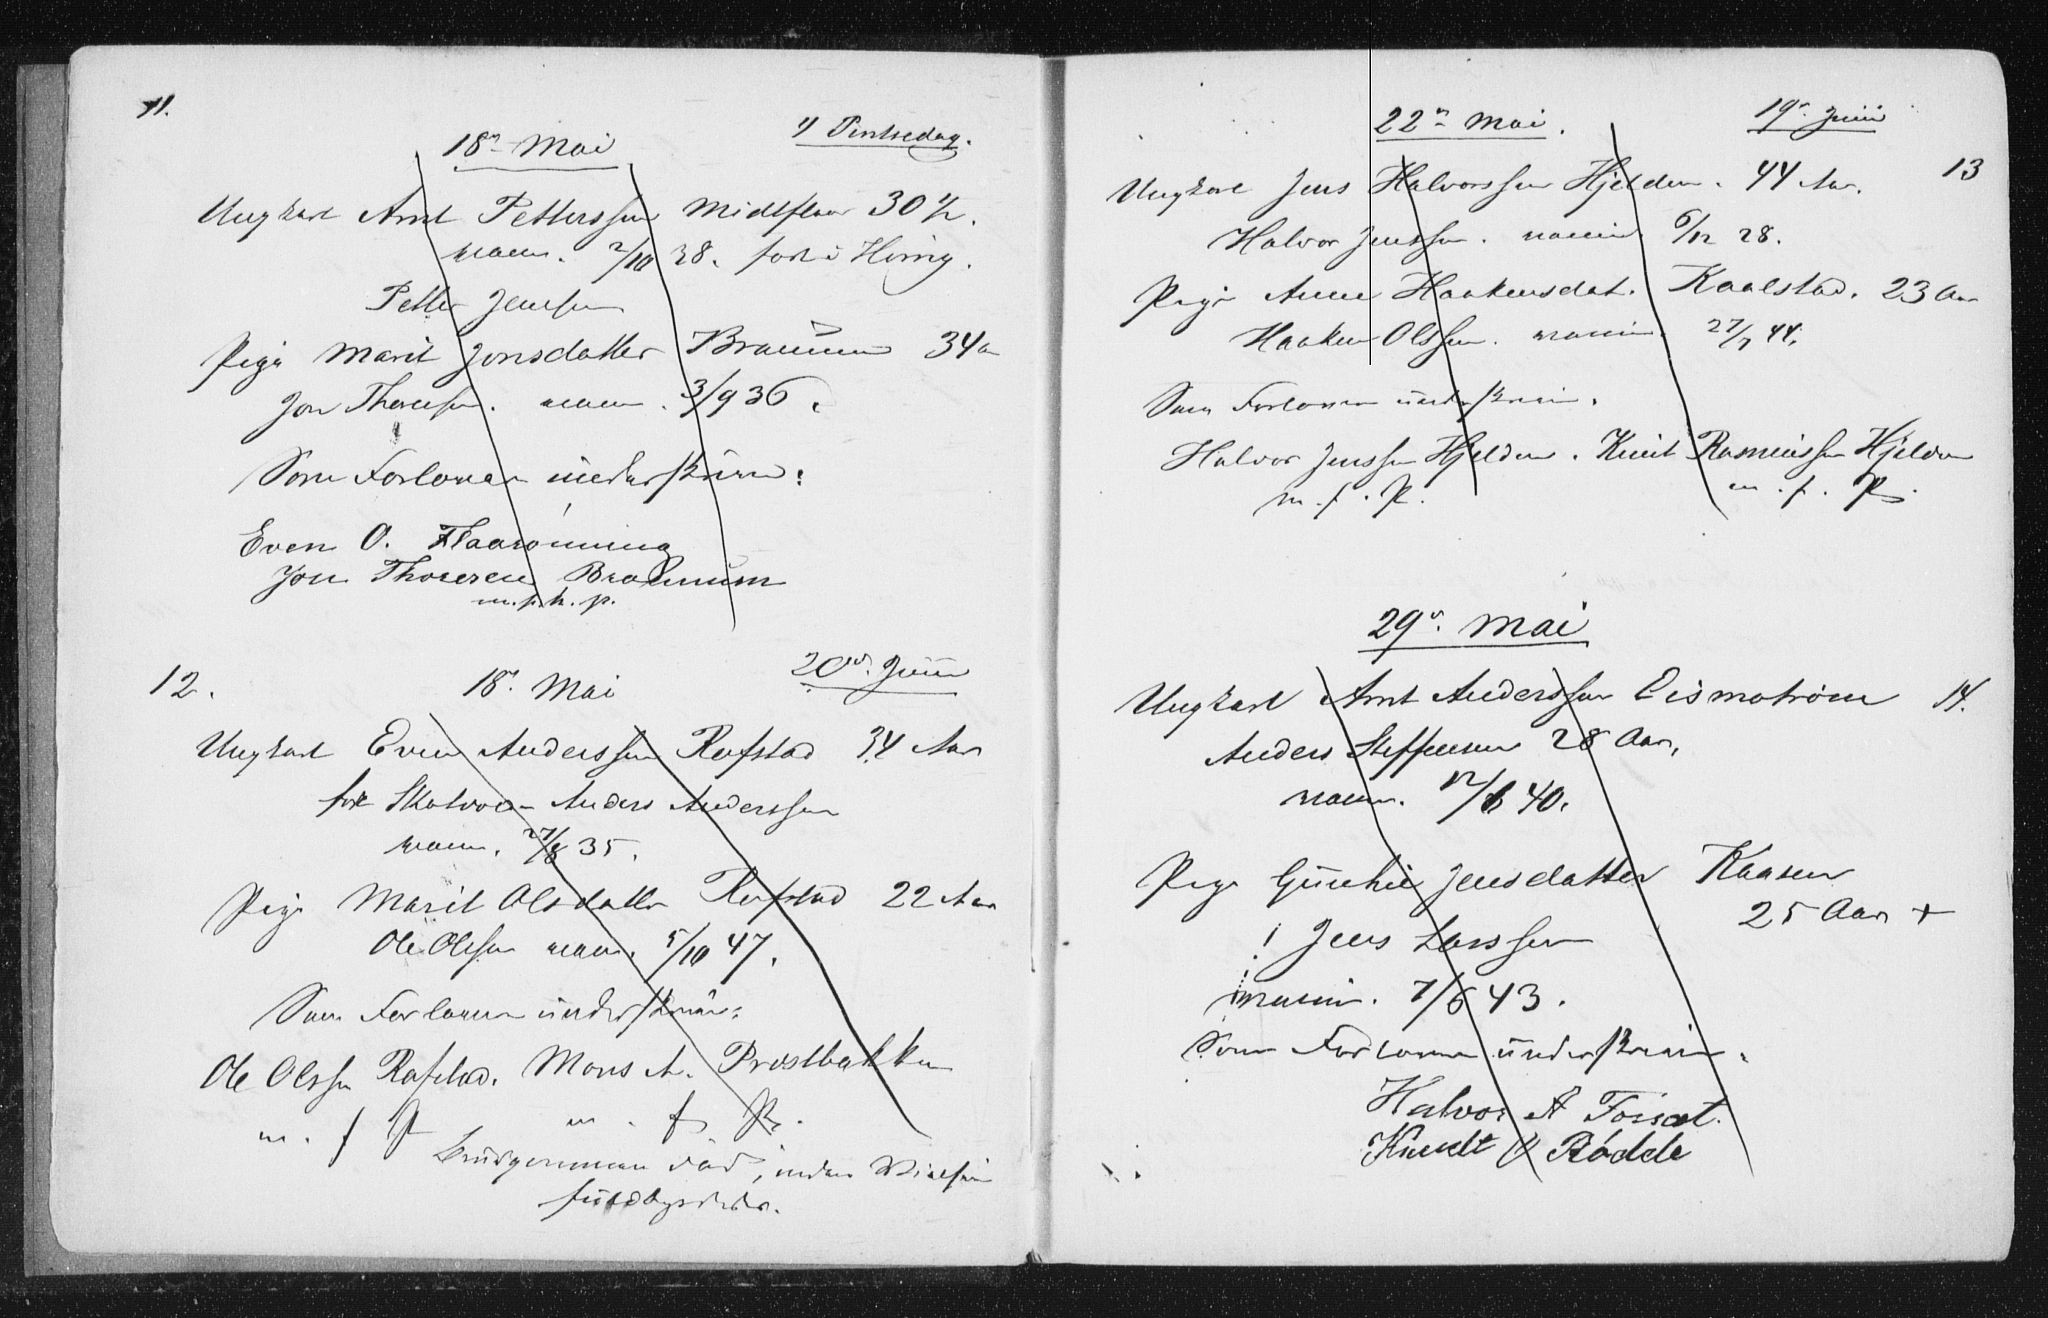 11.
18de Mai
2/ Pintsedag.
Ungkarl Arnt Petterssen Midtflaa 30 ½.
vacc. 2/10 38. født i Horrig.
Petter Jenssen
Pige Marit Jonsdatter Braanum 34 a
Jon Thoresen. vacc. 3/9 36.
Som Forlovere underskrive:
Even O. Flaarönning
Jon Thoresen Braanum
m. p. h. p.
12.
18. Mai
20de Juni
Ungkarl Even Anderssen Rofstad 34 Aar
født Skatvoll Anders Anderssen
vacc. 27/8 35.
Pige Marit Olsdatter Rofstad 22 Aar
Ole Olssen vacc. 5/10 47.
Som Forlovere underskrive:
Ole Olssen Rofstad. Mons A. Prestbakken
m. f P m. f. P.
Brudgommen
22de Mai.
19de Juni
13
Ungkarl Jens Halvorssen Hjelden. 44 Aar.
Halvor Jenssen. vaccin. 6/12 28.
Pige Anne Haakensdat. Kaalstad. 23 Aar
Haaken Olssen. vaccin. 27/7 44.
Som Forlovere underskrive.
Halvor Jenssen Hjelden. Knut Rasmussen Hjelden
m. f. P. m. f. P.
29de Mai
Ungkarl Arnt Anderssen 14.
Anders Steffensen 28 Aar.
vacc. 12/6 40.
Pige Gunhild Jensdatter Kaasen
25 Aar +
! Jens Larssen
vaccin. 7/6 43.
Som Forlovere underskrive.
Halvor A Fossat.
Knudt Rødde